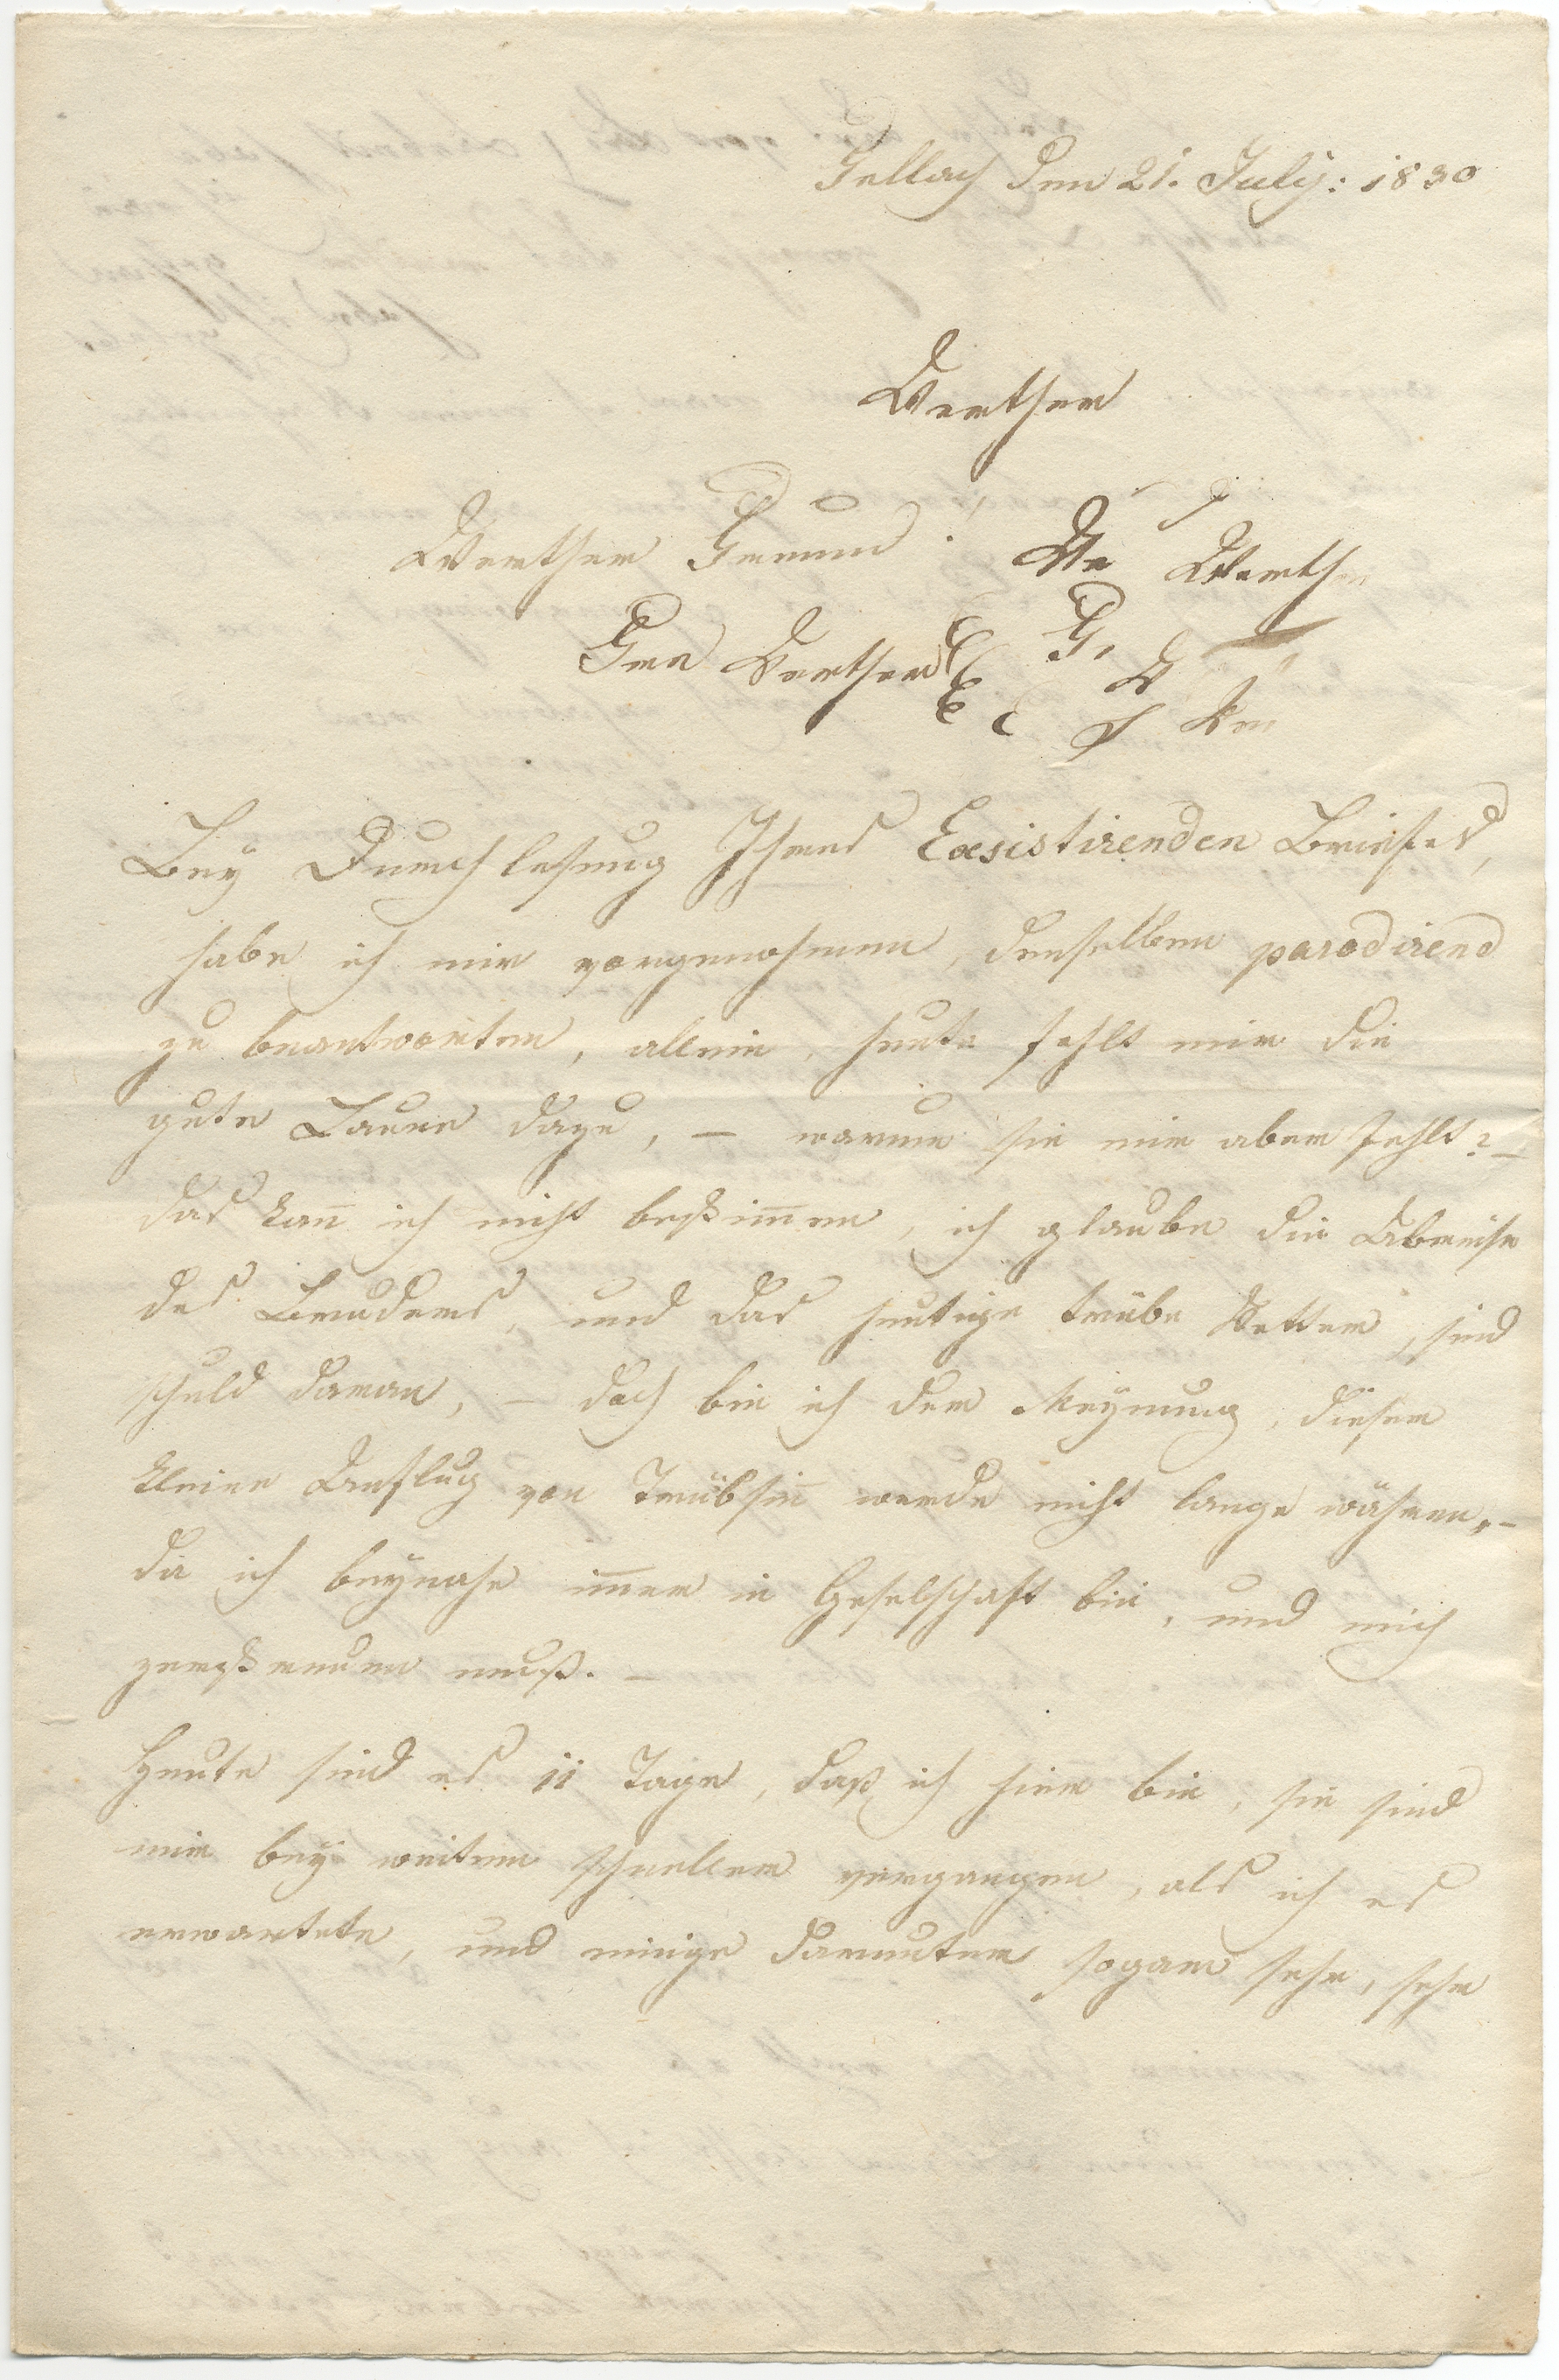 Gellach den 21. July: 1830
Werther
Werther Freund! We Werther
Fre Werther F.
W
Bey Durchlesung Ihres Exsistirenden Briefes,
habe ich mir vorgenohmen, denselben parodirend
zu beantworten, allein, heute fehlt mir die
gute Laune dazu, – warum sie mir aber fehlt? –
das kan̅ ich nicht bestim̅en, ich glaube die Abreise
des Bruders, und das heutige trübe Wetter, sind
schuld daran, – doch bin ich der Meynung, dieser
kleine Anflug von Trübsin̅ werde nicht lange währen, –
da ich beynahe im̅er in Geselschaft bin, und mich
zerstreuen muß. –
Heute sind es 11 Tage, daß ich hier bin, sie sind
mir bey weitem schneller vergangen, als ich es
erwartete, und einige darunter sogar sehr, sehr